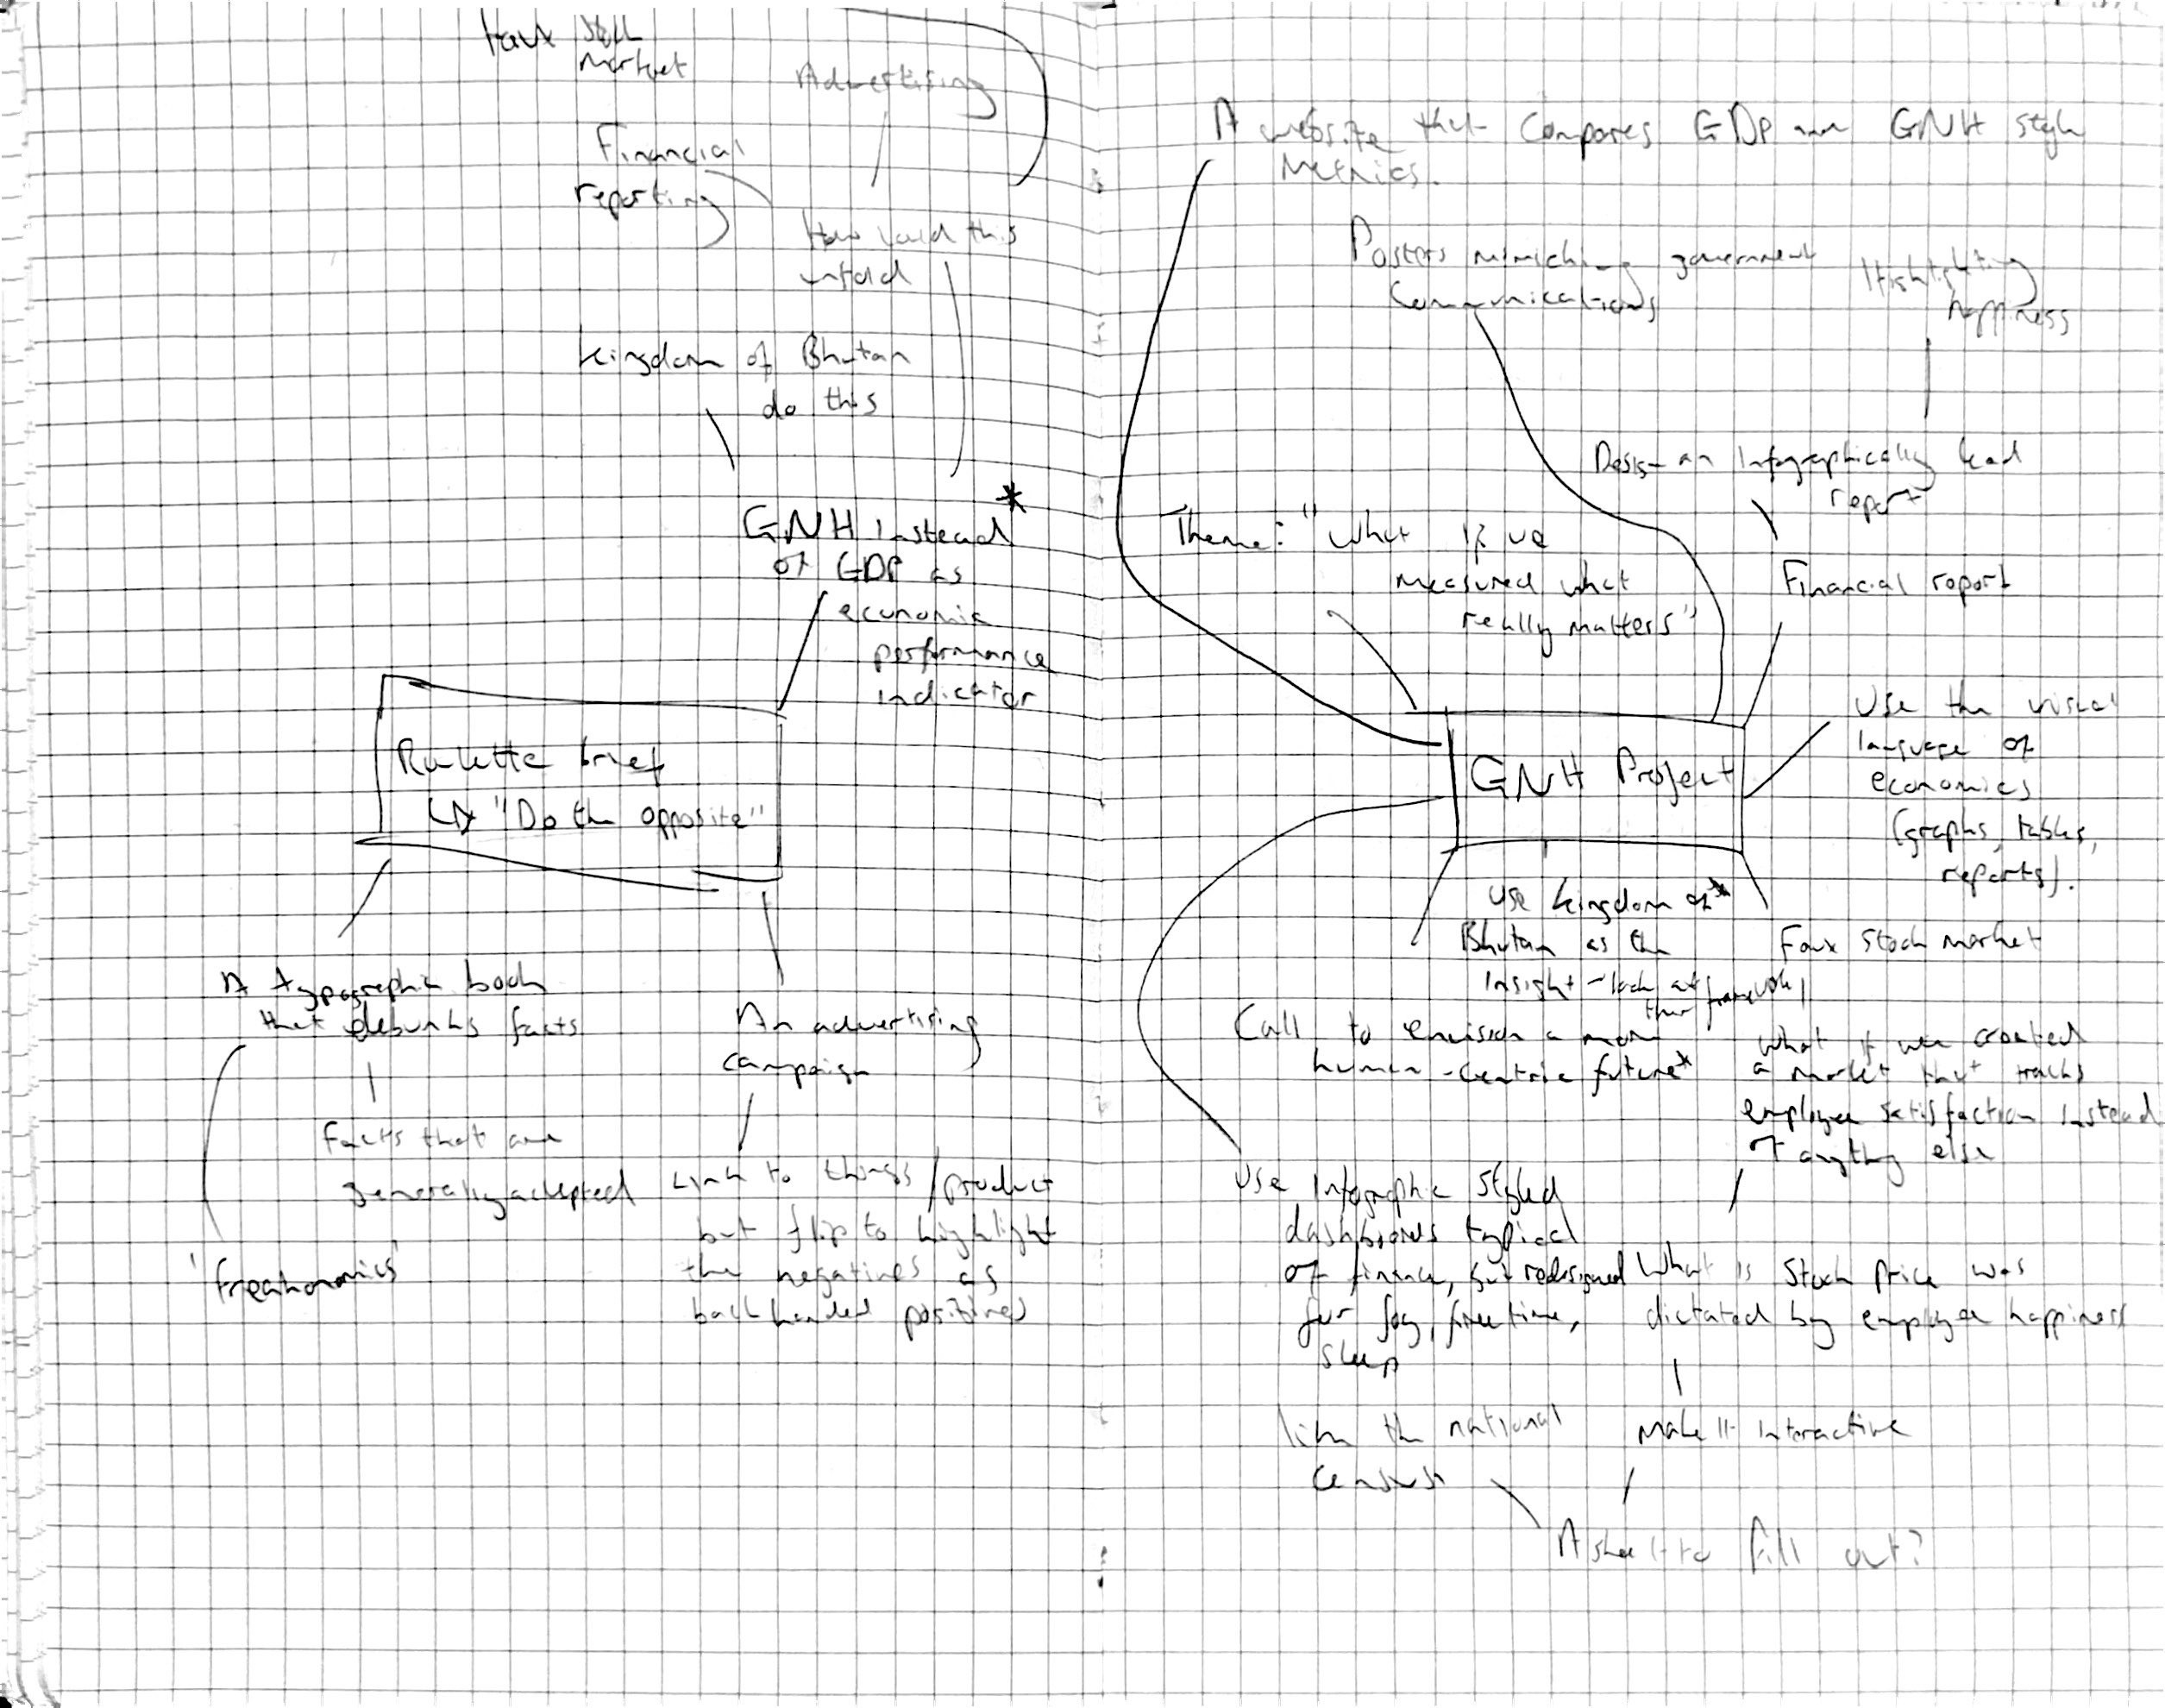 Faux Stock
Market
Advertising
Financial
reporting
How could this
unfold
Kingdom of Bhutan
do this
GNH instead *
of GDP as
economic
performance
indicator
Roulette brief
↳ "Do the opposite"
A typographic book
that debunks facts
Facts that are
generally accepted
'freakonomics'
An advertising
campaign
Link to things / product
but flip to highlight
the negatives as
backhanded positives
A website that compares GDP and GNH style
Metrics.
Posters mimicking government
Communications
Highlighting
happiness
Design an Infographically lead
report
Theme: "What if we
measured what
really matters"
Financial report
GNH Project
Use the visual
language of
economics
(graphs, tables,
reports).
Use Kingdom of *
Bhutan as the
insight - look at
their framework
Faux Stock market
Call to envision a more
human-centric future *
What if we created
a market that tracks
employee satisfaction instead
of anything else
Use Infographic styled
dashboards typical
of finance, but redesigned
for joy, free time,
sleep
What is Stock price was
dictated by employee happiness
like the national
census
Make it interactive
A sheet to fill out?